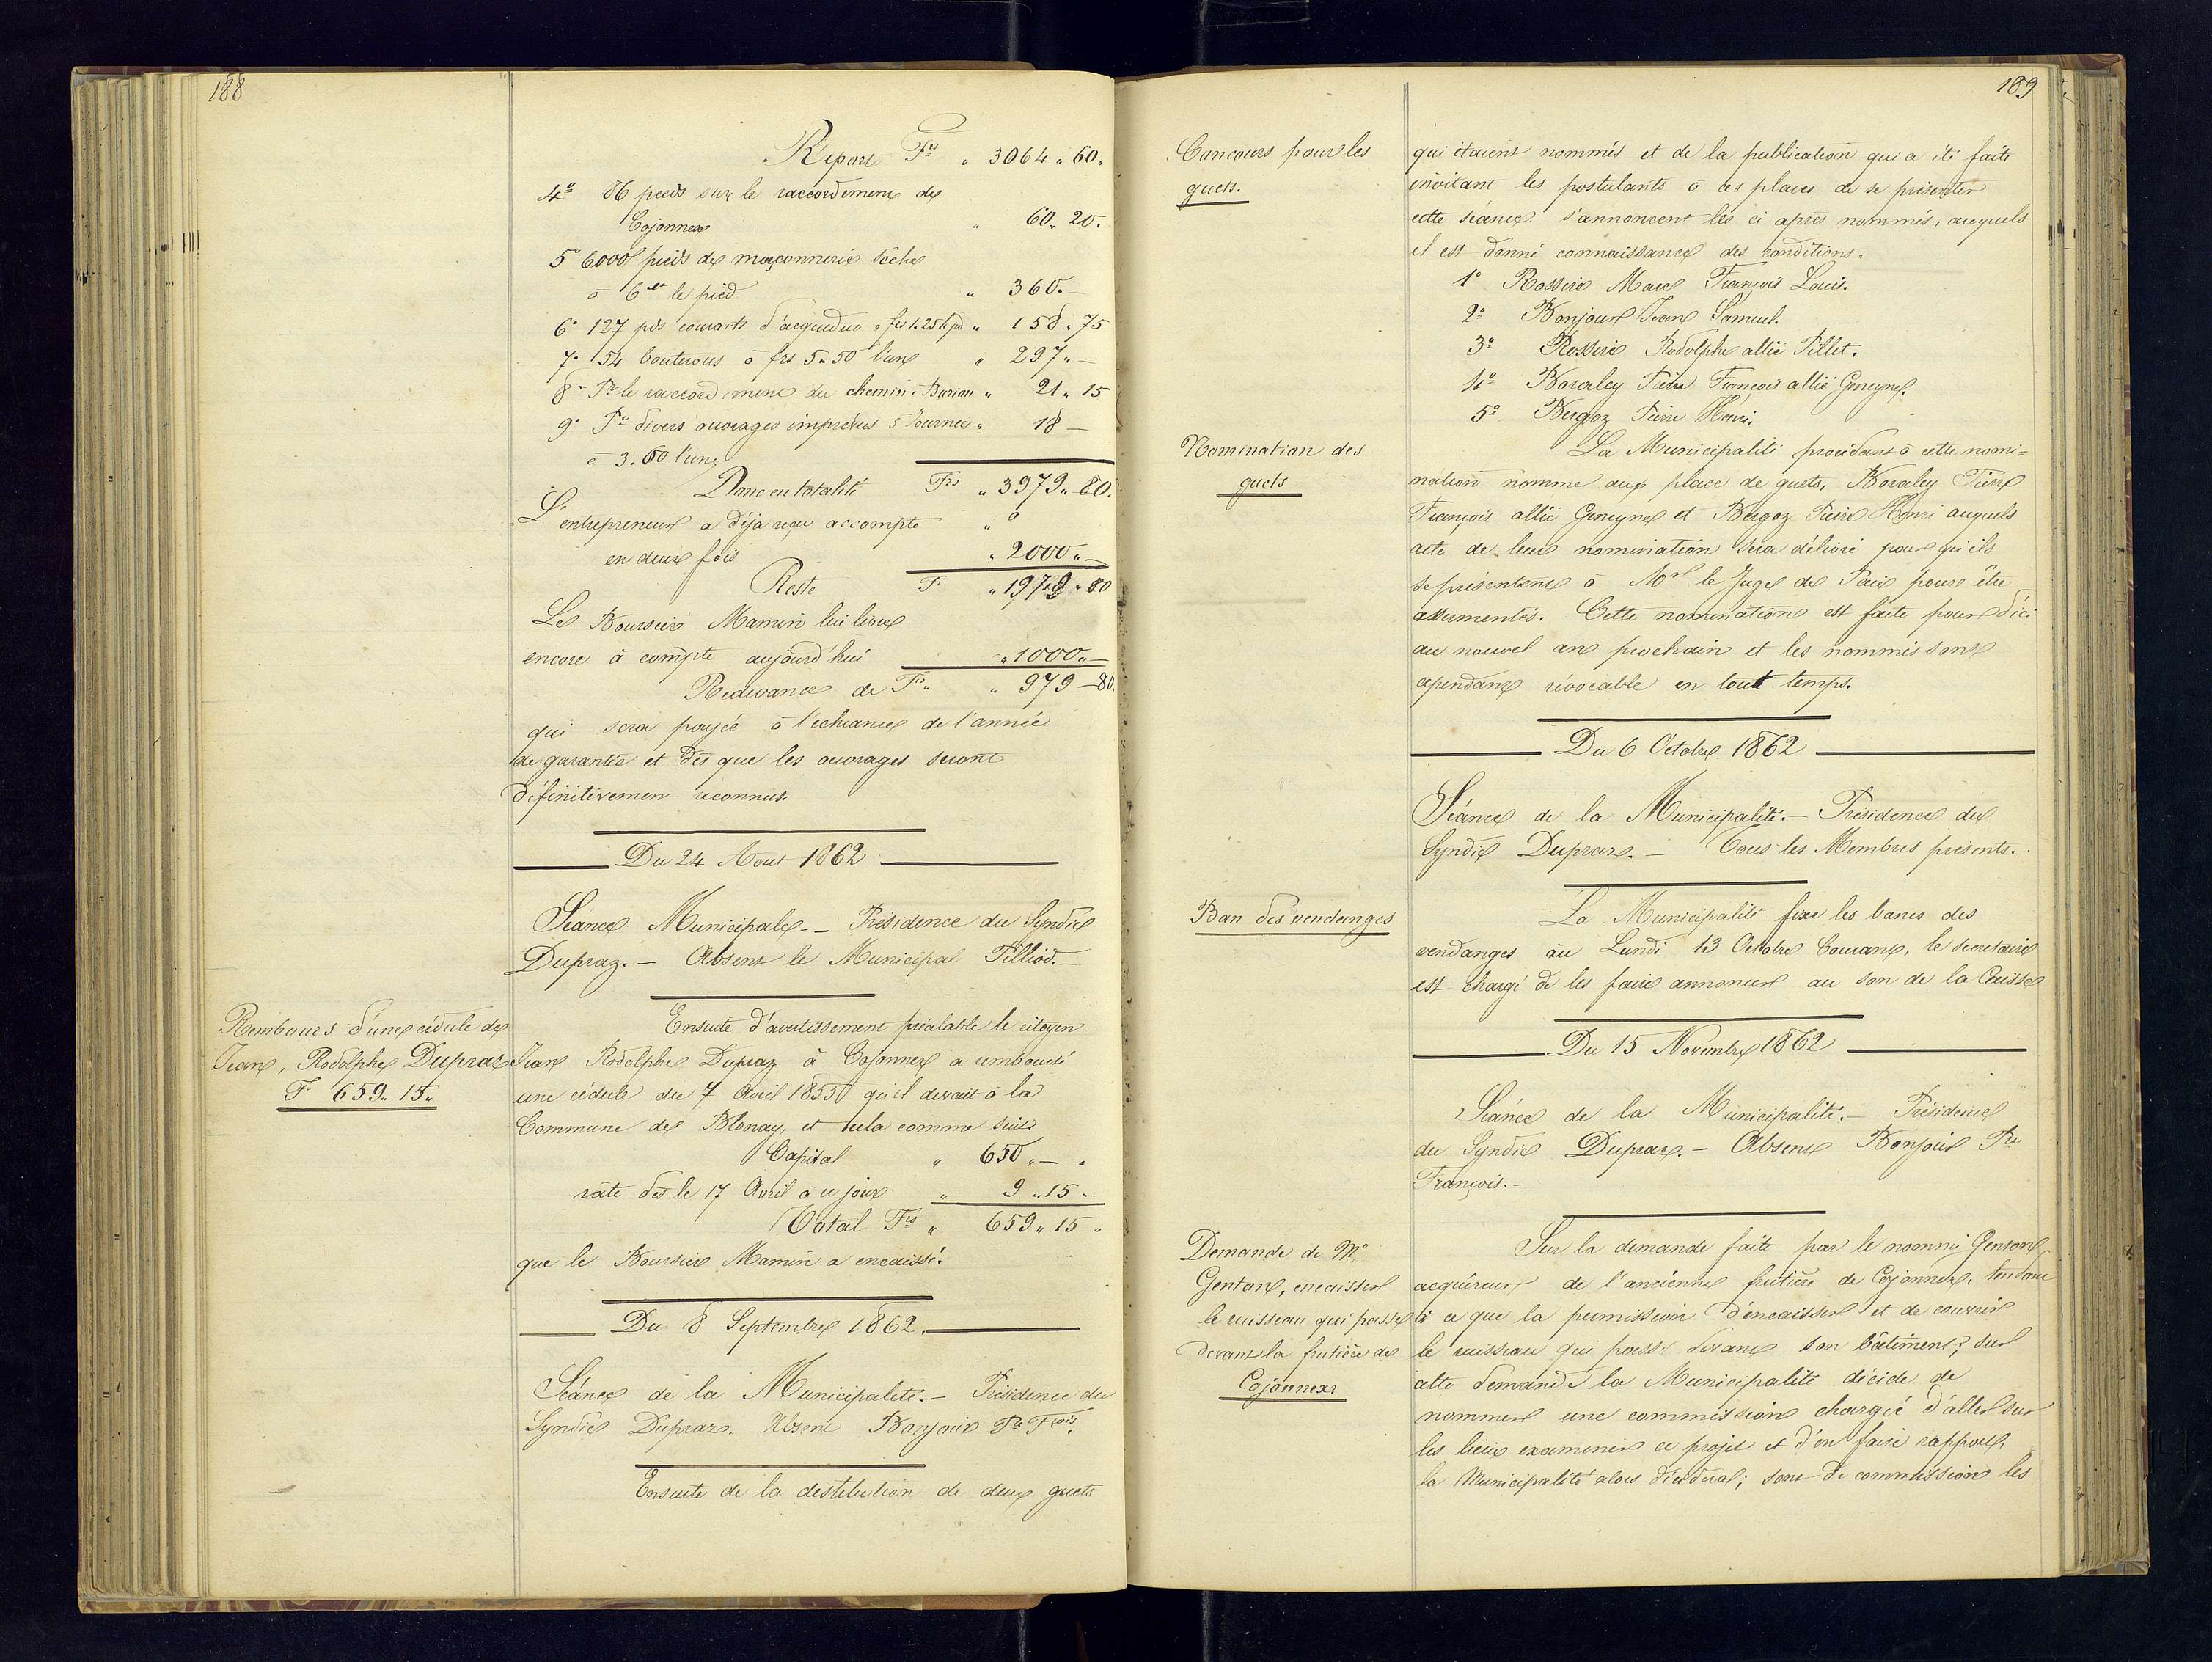 188
Report Frs „ 3064 „ 60.
4° 86 pieds sur le raccordement de
Cojonnex „ 60. 20.
5° 6000 pieds de maçonnerie sèche
à 6 cts le pied „ 360.—
6° 127 pds courants d'acqueduc à frs 1.25 le pd „ 158 „ 75
7° 54 bouterous à frs 5 „ 50 l'une „ 297 „ —
8° Pr le raccordement du chemin à Burian „ 21 „ 15
9° Pr divers ouvrages imprévus 5 Journées „ 18 —
à 3.60 l'une
Donc en totalité Frs „ 3979 „ 80.
L'entrepreneur a déja reçu accompte „
en deux fois „ 2000 „ —
Reste F „ 1979 „ 80
Le Boursier Mamin lui livre
encore à compte aujourd'hui „ 1000 „ —
Redevance de Frs „ 979 — 80.
qui sera payée à l'échéance de l'année
de garantie et dès que les ouvrages seront
définitivement reconnus.
Du 24 Aout 1862
Séance Municipale — Présidence du Syndic
Dupraz. — Absent le Municipal Pilliod. —
Rembours d'une cédule de
Jean, Rodolphe Dupraz
F 659. 15.
Ensuite d'avertissement préalable le citoyen
Jean Rodolphe Dupraz à Cojonnex a remboursé
une cédule du 7 Avril 1855 qu'il devait à la
Commune de Blonay, et cela comme suit
Capital „ 650 „ — „
rate dès le 17 Avril à ce jour „ 9 „ 15 „
Total Frs „ 659 „ 15 „
que le Boursier Mamin a encaissé.
Du 8 Septembre 1862.
Séance de la Municipalité. — Présidence du
Syndic Dupraz. Absent Bonjour Pre Fçois.
Ensuite de la destitution de deux guets
189
Concours pour les
guets.
qui étaient nommés et de la publication qui a été faite
invitant les postulants à ces places de se présenter
cette séance. s'annoncent les ci après nommés, auxquels
il est donné connaissance des conditions.
1° Rossire Marc François Louis.
2° Bonjour Jean Samuel.
3° Rossire Rodolphe allié Pillet.
4° Bovaley Pierre François allié Geneyne.
5° Bergoz Pierre Henri.
Nomination des
guets
La Municipalité procédant à cette nomi=
nation nomme aux place de guets, Bovaley Pierre
François allié Geneyne et Bergoz Pierre Henri auquels
acte de leur nomination sera délivré pour qu'ils
se présentent à Mr le Juge de Paix pour être
assumentés. Cette nomination est faite pour d'ici
au nouvel an prochain et les nommés sont
cependant révocable en tout temps.
Du 6 Octobre 1862
Séance de la Municipalité. — Présidence du
Syndic Dupraz. — Tous les Membres présents.
Ban des vendanges
La Municipalité fixe les bancs des
vendanges au Lundi 13 Octobre Courant, le secretaire
est chargé de les faire annoncer au son de la Caisse
Du 15 Novembre 1862
Séance de la Municipalité. — Présidence
du Syndic Dupraz. — Absent Bonjour Pre
François. —
Demande de Mr
Genton, encaisser
le ruisseau qui passe
devant la fruitière de
Cojonnex
Sur la demande faite par le nommé Genton
acquéreur de l'ancienne fruitière de Cojonnex, tendant
à ce que la permission d'encaisser et de couvrir
le ruisseau qui passe devant son bâtiment; sur
cette demande la Municipalité décide de
nommer une commission chargée d'aller sur
les lieux examiner ce projet et d'en faire rapport,
la Municipalité alors décidera; sont de commission les